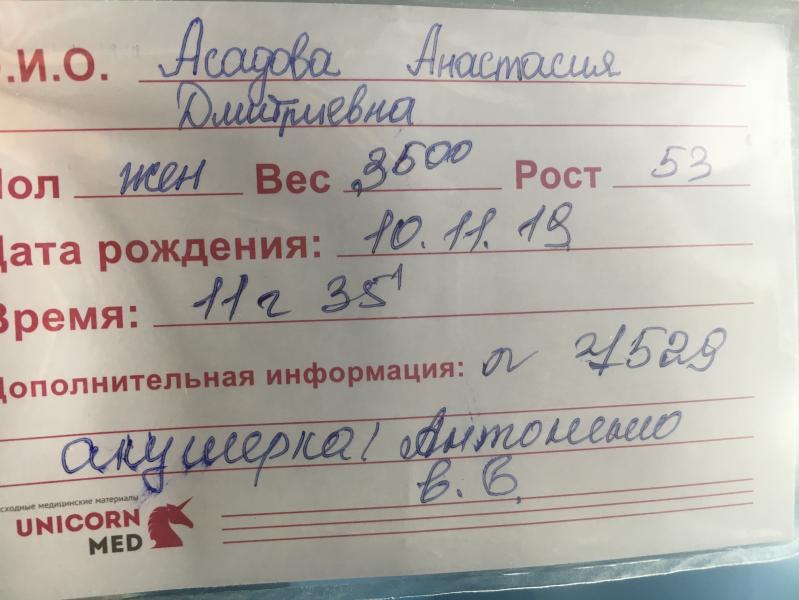 .И.О. Асадова Анастасия
Дмитриевна
Пол жен Вес 3500 Рост 53
Дата рождения: 10.11.19
Время: 11ч 35'
Дополнительная информация: 7529
акушерка/ Антоненко
В.В.
сходные медицинские материалы
UNICORN
MED